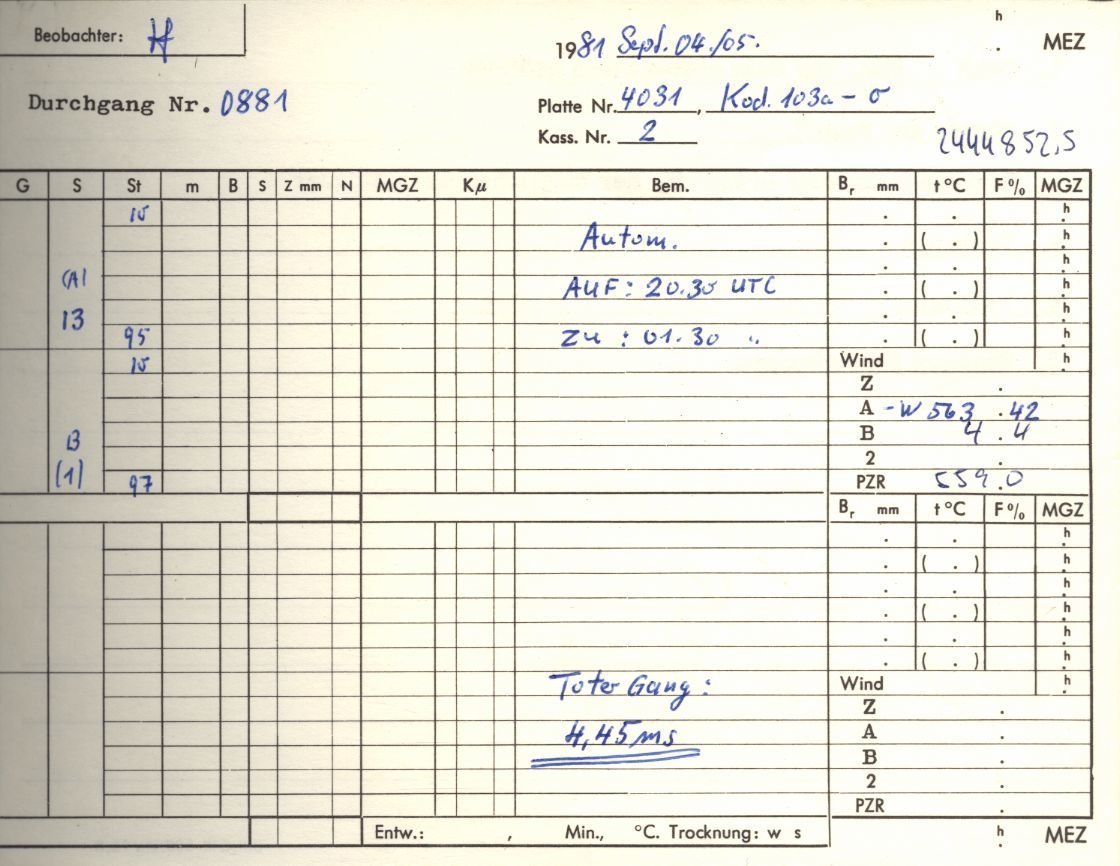 Beobachter: H
1981 Sept. 04./05. h . MEZ
Durchgang Nr. 0881
Platte Nr. 4031, Kod. 103a-O
Kass. Nr. 2
2444852,5
G S St m B S Z mm N MGZ Kμ Bem. Br mm t °C F % MGZ
10 . . h
Autom. . ( . ) h
(A) . . h
AUF: 20.30 UTC . ( . ) h
13 . . h
95 ZU : 01.30 " . ( . ) h
10 Wind h
Z .
A -W 563 . 42
B B 4 . 4
2 .
(1) 97 PZR 559.0
Br mm t °C F % MGZ
. . h
. ( . ) h
. . h
. ( . ) h
. . h
. ( . ) h
Toter Gang: Wind h
Z .
4,45 ms A .
B .
2 .
PZR .
Entw.: , Min., °C. Trocknung: w s h . MEZ